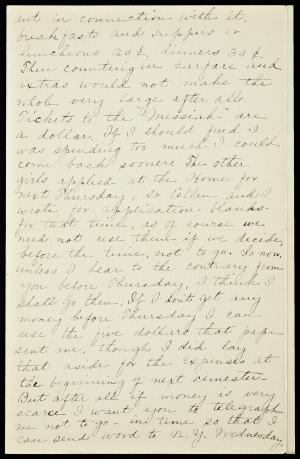 ant in connection with it,
breakfasts and suppers or
luncheons 20¢, dinners 30¢.
Then counting in carfare and
extras would not make the
whole very large after all.
Tickets to the "Messiah" are
a dollar. If I should find I
was spending too much I could
come back sooner. The other
girls applied at the Home for
next Thursday, so Ellen and I
wrote for application blanks
for that time, as of course we
need not use them if we decide,
before the time, not to go. So now,
unless I hear to the contrary from
you before Thursday, I think I
shall go then. If I don't get any
money before Thursday I can
use the five dollars that papa
sent me, though I did lay
that aside for the expenses at
the beginning of next semester.
But after all if money is very
scarce I want you to telegraph
me not to go - in time so that I
can send word to N.Y. Wednesday,